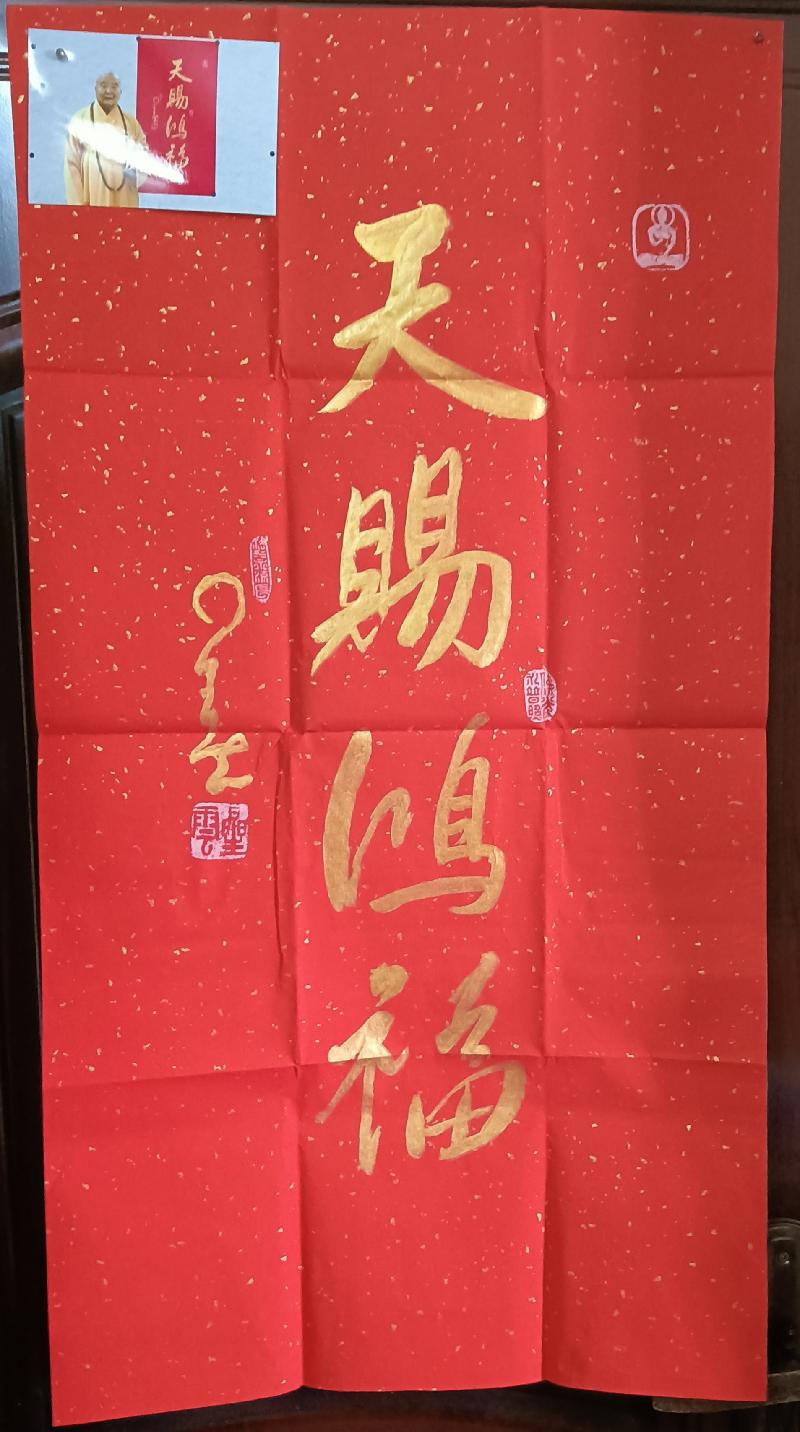 天賜鴻福
星雲
天賜鴻福